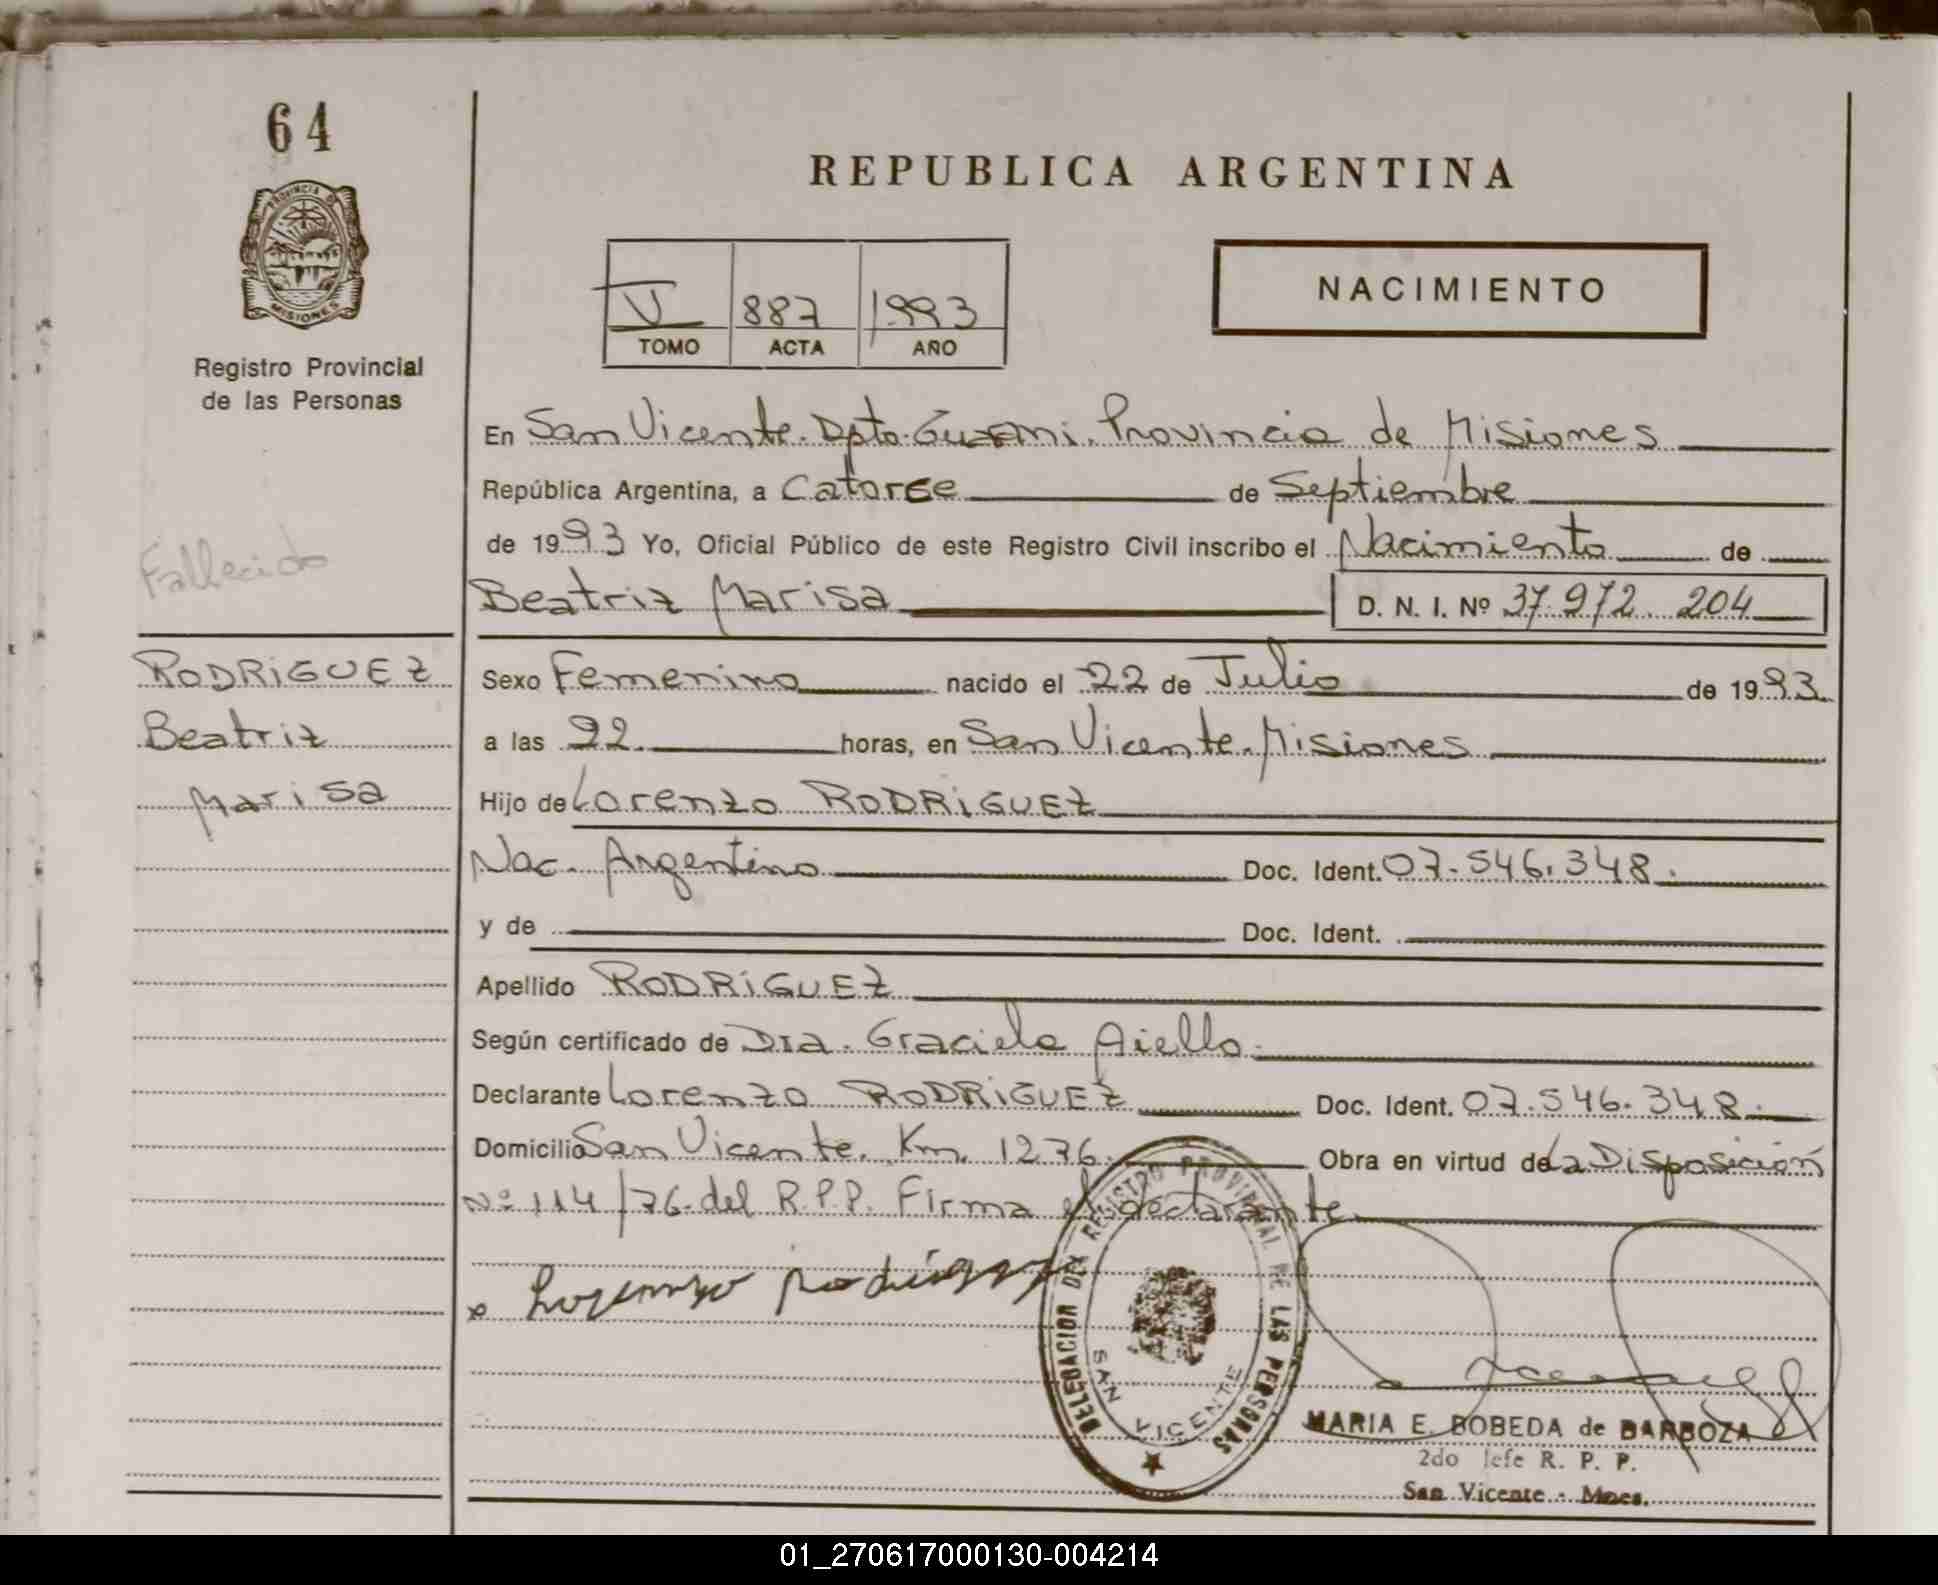 64
REPUBLICA ARGENTINA
PROVINCIA DE
MISIONES
Registro Provincial
de las Personas
V 887 1993
TOMO ACTA AÑO
NACIMIENTO
En San Vicente. Dpto. Guarani. Provincia de Misiones
República Argentina, a Catorce de Septiembre
de 1993 Yo, Oficial Público de este Registro Civil inscribo el Nacimiento de
Fallecido
Beatriz Marisa D. N. I. Nº 37.972.204
RODRIGUEZ
Beatriz
Marisa
Sexo Femenino nacido el 22 de Julio de 1993
a las 22. horas, en San Vicente. Misiones
Hijo de Lorenzo RODRIGUEZ
Nac. Argentino Doc. Ident. 07.546.348.
y de Doc. Ident.
Apellido RODRIGUEZ
Según certificado de Dra. Graciela Aiello.
Declarante Lorenzo RODRIGUEZ Doc. Ident. 07.546.348.
Domicilio San Vicente. Km. 1276. Obra en virtud de La Disposición
Nº 114/76 del R.P.P. Firma el declarante.
x Lorenzo Rodriguez
DELEGACION DEL REGISTRO PROVINCIAL DE LAS PERSONAS
SAN VICENTE
MARIA E. BOBEDA de BARBOZA
2do Jefe R. P. P.
San Vicente - Mnes.
01_270617000130-004214